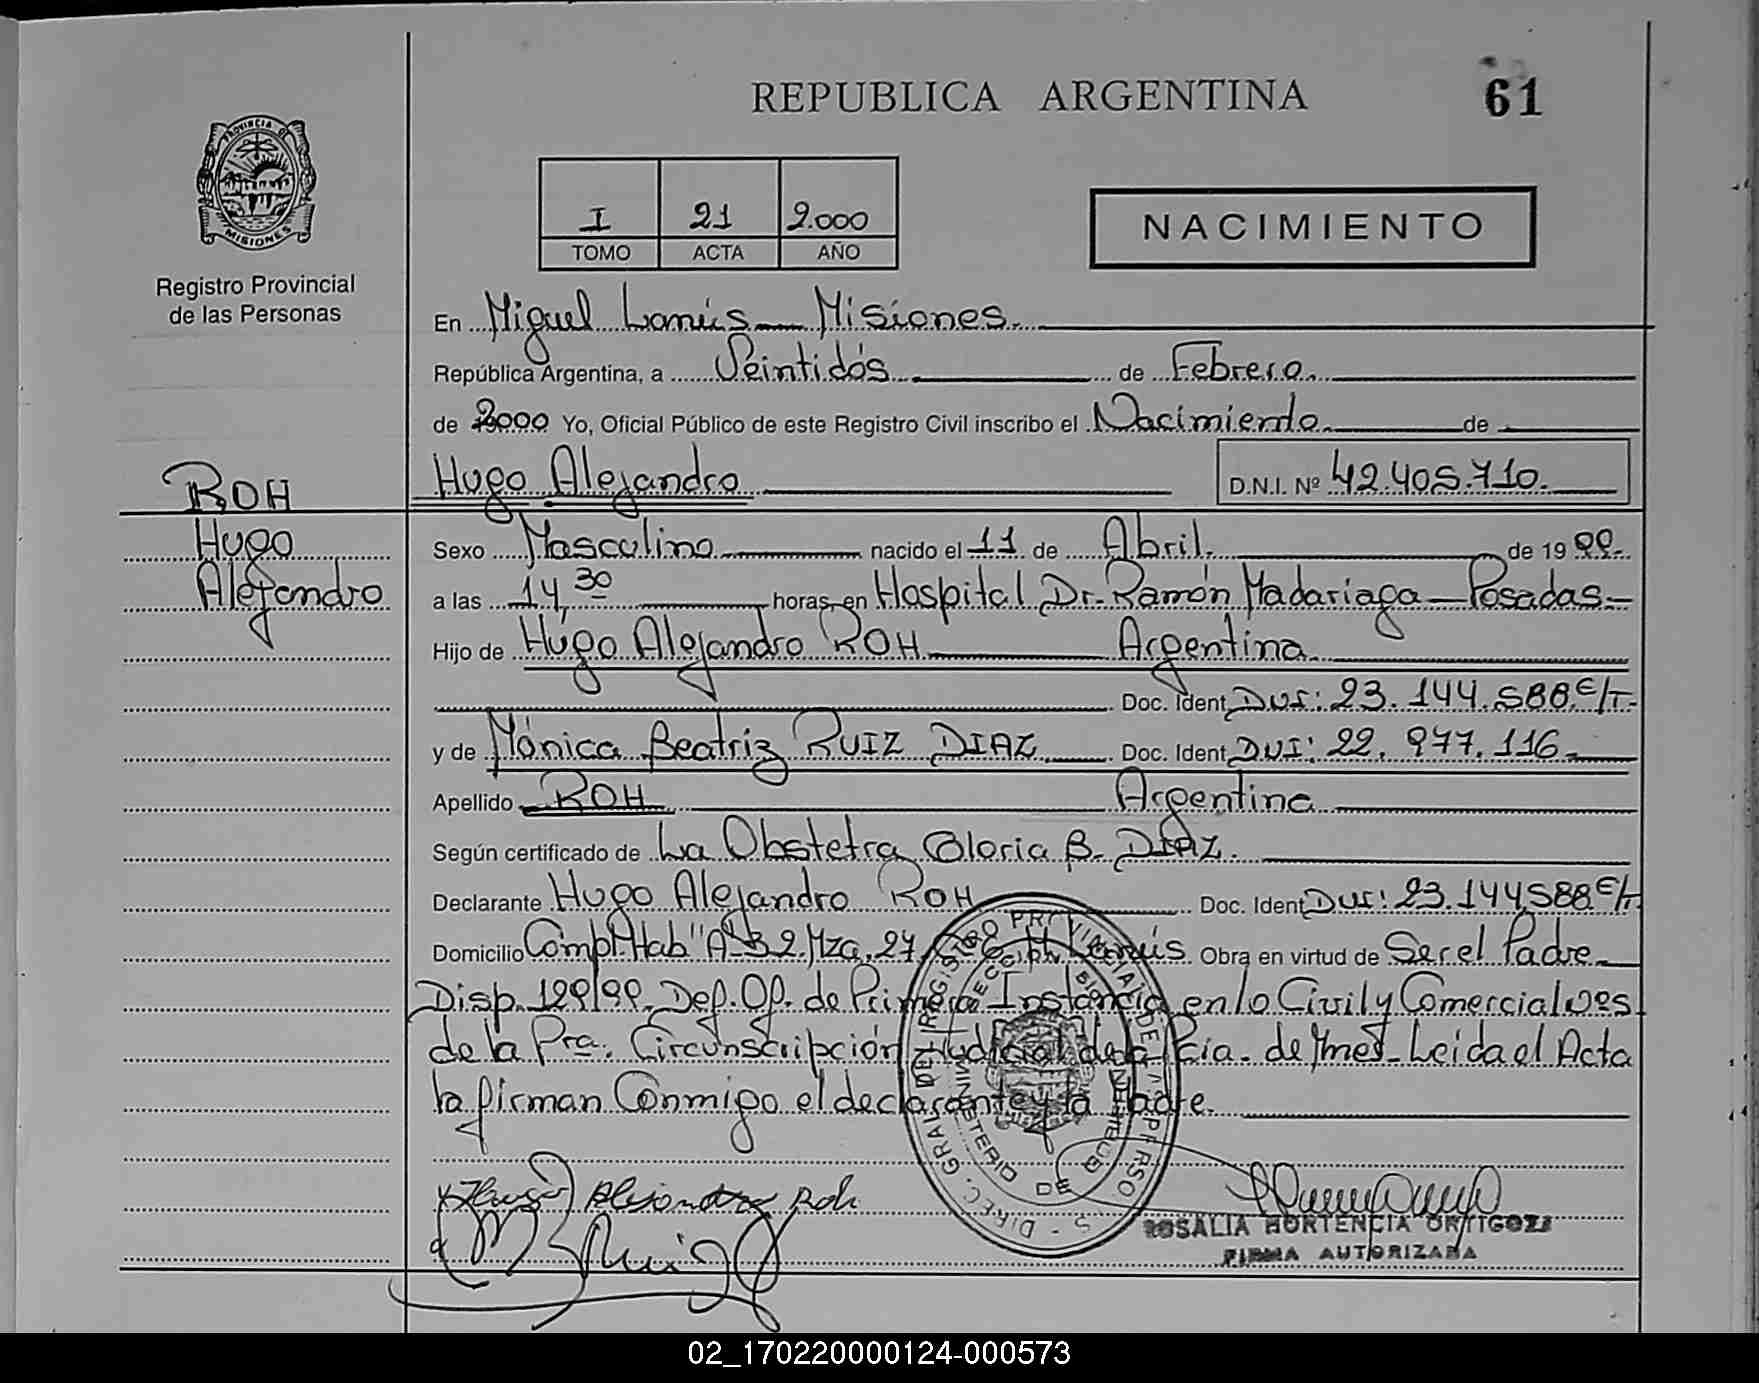 REPUBLICA ARGENTINA
61
PROVINCIA DE
MISIONES
Registro Provincial
de las Personas
I 21 2.000
TOMO ACTA AÑO
NACIMIENTO
En Miguel Lanús Misiones.
República Argentina, a Veintidós de Febrero.
de 2000 Yo, Oficial Público de este Registro Civil inscribo el Nacimiento de
ROH
Hugo Alejandro D.N.I. Nº 42.405.710.
Hugo
Alejandro
Sexo Masculino nacido el 11 de Abril. de 19 99.
a las 14,30 horas, en Hospital Dr. Ramón Madariaga - Posadas.-
Hijo de Hugo Alejandro ROH Argentina
Doc. Ident DUI: 23.144.588 E/T.-
y de Mónica Beatriz RUIZ DIAZ Doc. Ident DUI: 22.977.116-
Apellido ROH Argentina
Según certificado de La Obstetra Gloria B. DIAZ.
Declarante Hugo Alejandro ROH Doc. Ident DUI: 23.144.588 E/T.
Domicilio Comp. Hab "A-32. Mza. 27 Lanús Obra en virtud de Ser el Padre
Disp. 129/99. Def. Of. de Primera Instancia en lo Civil y Comercial
de la Pra. Circunscripción Judicial de la Pcia. de Mnes. Leida el Acta
la firman Conmigo el declarante y la Madre.
DIREC. GRAL DEL REGISTRO PROVINCIAL DE LA PERSO
MINISTERIO DE
Hugo Alejandro Roh
M Ruiz
ROSALIA HORTENCIA ORTIGOZA
FIRMA AUTORIZADA
02_170220000124-000573